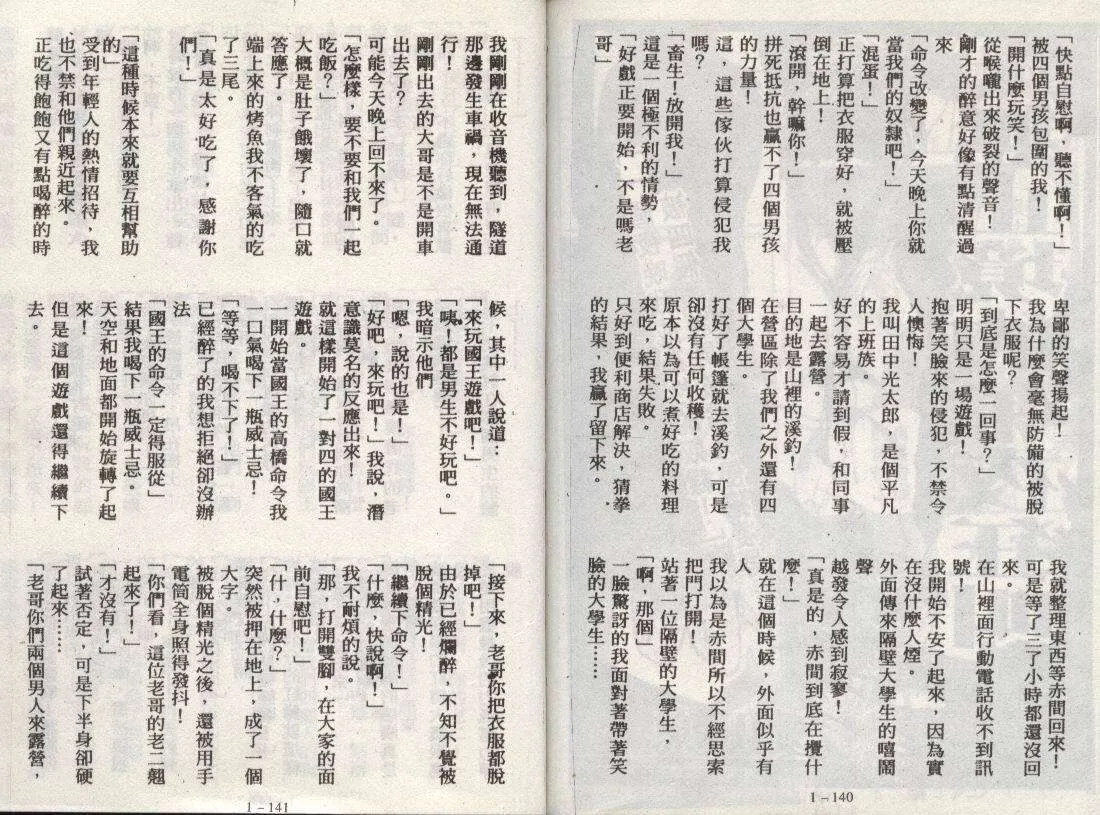 「快點自慰啊，聽不懂啊！」
被四個男孩包圍的我！
「開什麼玩笑！」
從喉嚨出來破裂的聲音！
剛才的醉意好像有點清醒過
來
「命令改變了，今天晚上你就
當我們的奴隸吧！」
「混蛋！」
正打算把衣服穿好，就被壓
倒在地上！
「滾開，幹嘛你！」
拼死抵抗也贏不了四個男孩
的力量！
這，這些傢伙打算侵犯我
嗎？
「畜生！放開我！」
這是一個極不利的情勢，
「好戲正要開始，不是嗎老
哥」
卑鄙的笑聲揚起！
我為什麼會毫無防備的被脫
下衣服呢？
「到底是怎麼一回事？」
明明只是一場遊戲！
抱著笑臉來的侵犯，不禁令
人懊悔！
我叫田中光太郎，是個平凡
的上班族。
好不容易才請到假，和同事
一起去露營。
目的地是山裡的溪釣！
在營區除了我們之外還有四
個大學生。
打好了帳篷就去溪釣，可是
卻沒有任何收穫！
原本以為可以煮好吃的料理
來吃，結果失敗。
只好到便利商店解決，猜拳
的結果，我贏了留下來。
我就整理東西等赤間回來！
可是等了三了小時都還沒回
來。
在山裡面行動電話收不到訊
號！
我開始不安了起來，因為實
在沒什麼人煙。
外面傳來隔壁大學生的嘻鬧
聲
越發令人感到寂寥！
「真是的，赤間到底在攪什
麼！」
就在這個時候，外面似乎有
人
我以為是赤間所以不經思索
把門打開！
站著一位隔壁的大學生，
「啊，那個」
一臉驚訝的我面對著帶著笑
臉的大學生……
1－140
我剛剛在收音機聽到，隧道
那邊發生車禍，現在無法通
行！
剛剛出去的大哥是不是開車
出去了？
可能今天晚上回不來了。
「怎麼樣，要不要和我們一起
吃飯？」
大概是肚子餓壞了，隨口就
答應了。
端上來的烤魚我不客氣的吃
了三尾。
「真是太好吃了，感謝你
們！」
「這種時候本來就要互相幫助
的」
受到年輕人的熱情招待，我
也不禁和他們親近起來。
正吃得飽飽又有點喝醉的時
候，其中一人說道：
「來玩國王遊戲吧！」
「咦！都是男生不好玩吧。」
我暗示他們
「嗯，說的也是！」
「好吧，來玩吧！」我說，潛
意識莫名的反應出來！
就這樣開始了一對四的國王
遊戲。
一開始當國王的高橋命令我
一口氣喝下一瓶威士忌！
「等等，喝不下了！」
已經醉了的我想拒絕卻沒辦
法
「國王的命令一定得服從」
結果我喝下一瓶威士忌。
天空和地面都開始旋轉了起
來！
但是這個遊戲還得繼續下
去。
「接下來，老哥你把衣服都脫
掉吧！」
由於已經爛醉，不知不覺被
脫個精光！
「繼續下命令！」
「什麼，快說啊！」
我不耐煩的說
「那，打開雙腳，在大家的面
前自慰吧！」
「什，什麼？」
突然被押在地上，成了一個
大字。
被脫個精光之後，還被用手
電筒全身照得發抖！
「你們看，這位老哥的老二翹
起來了！」
「才沒有！」
試著否定，可是下半身卻硬
了起來……
「老哥你們兩個男人來露營，
1－141